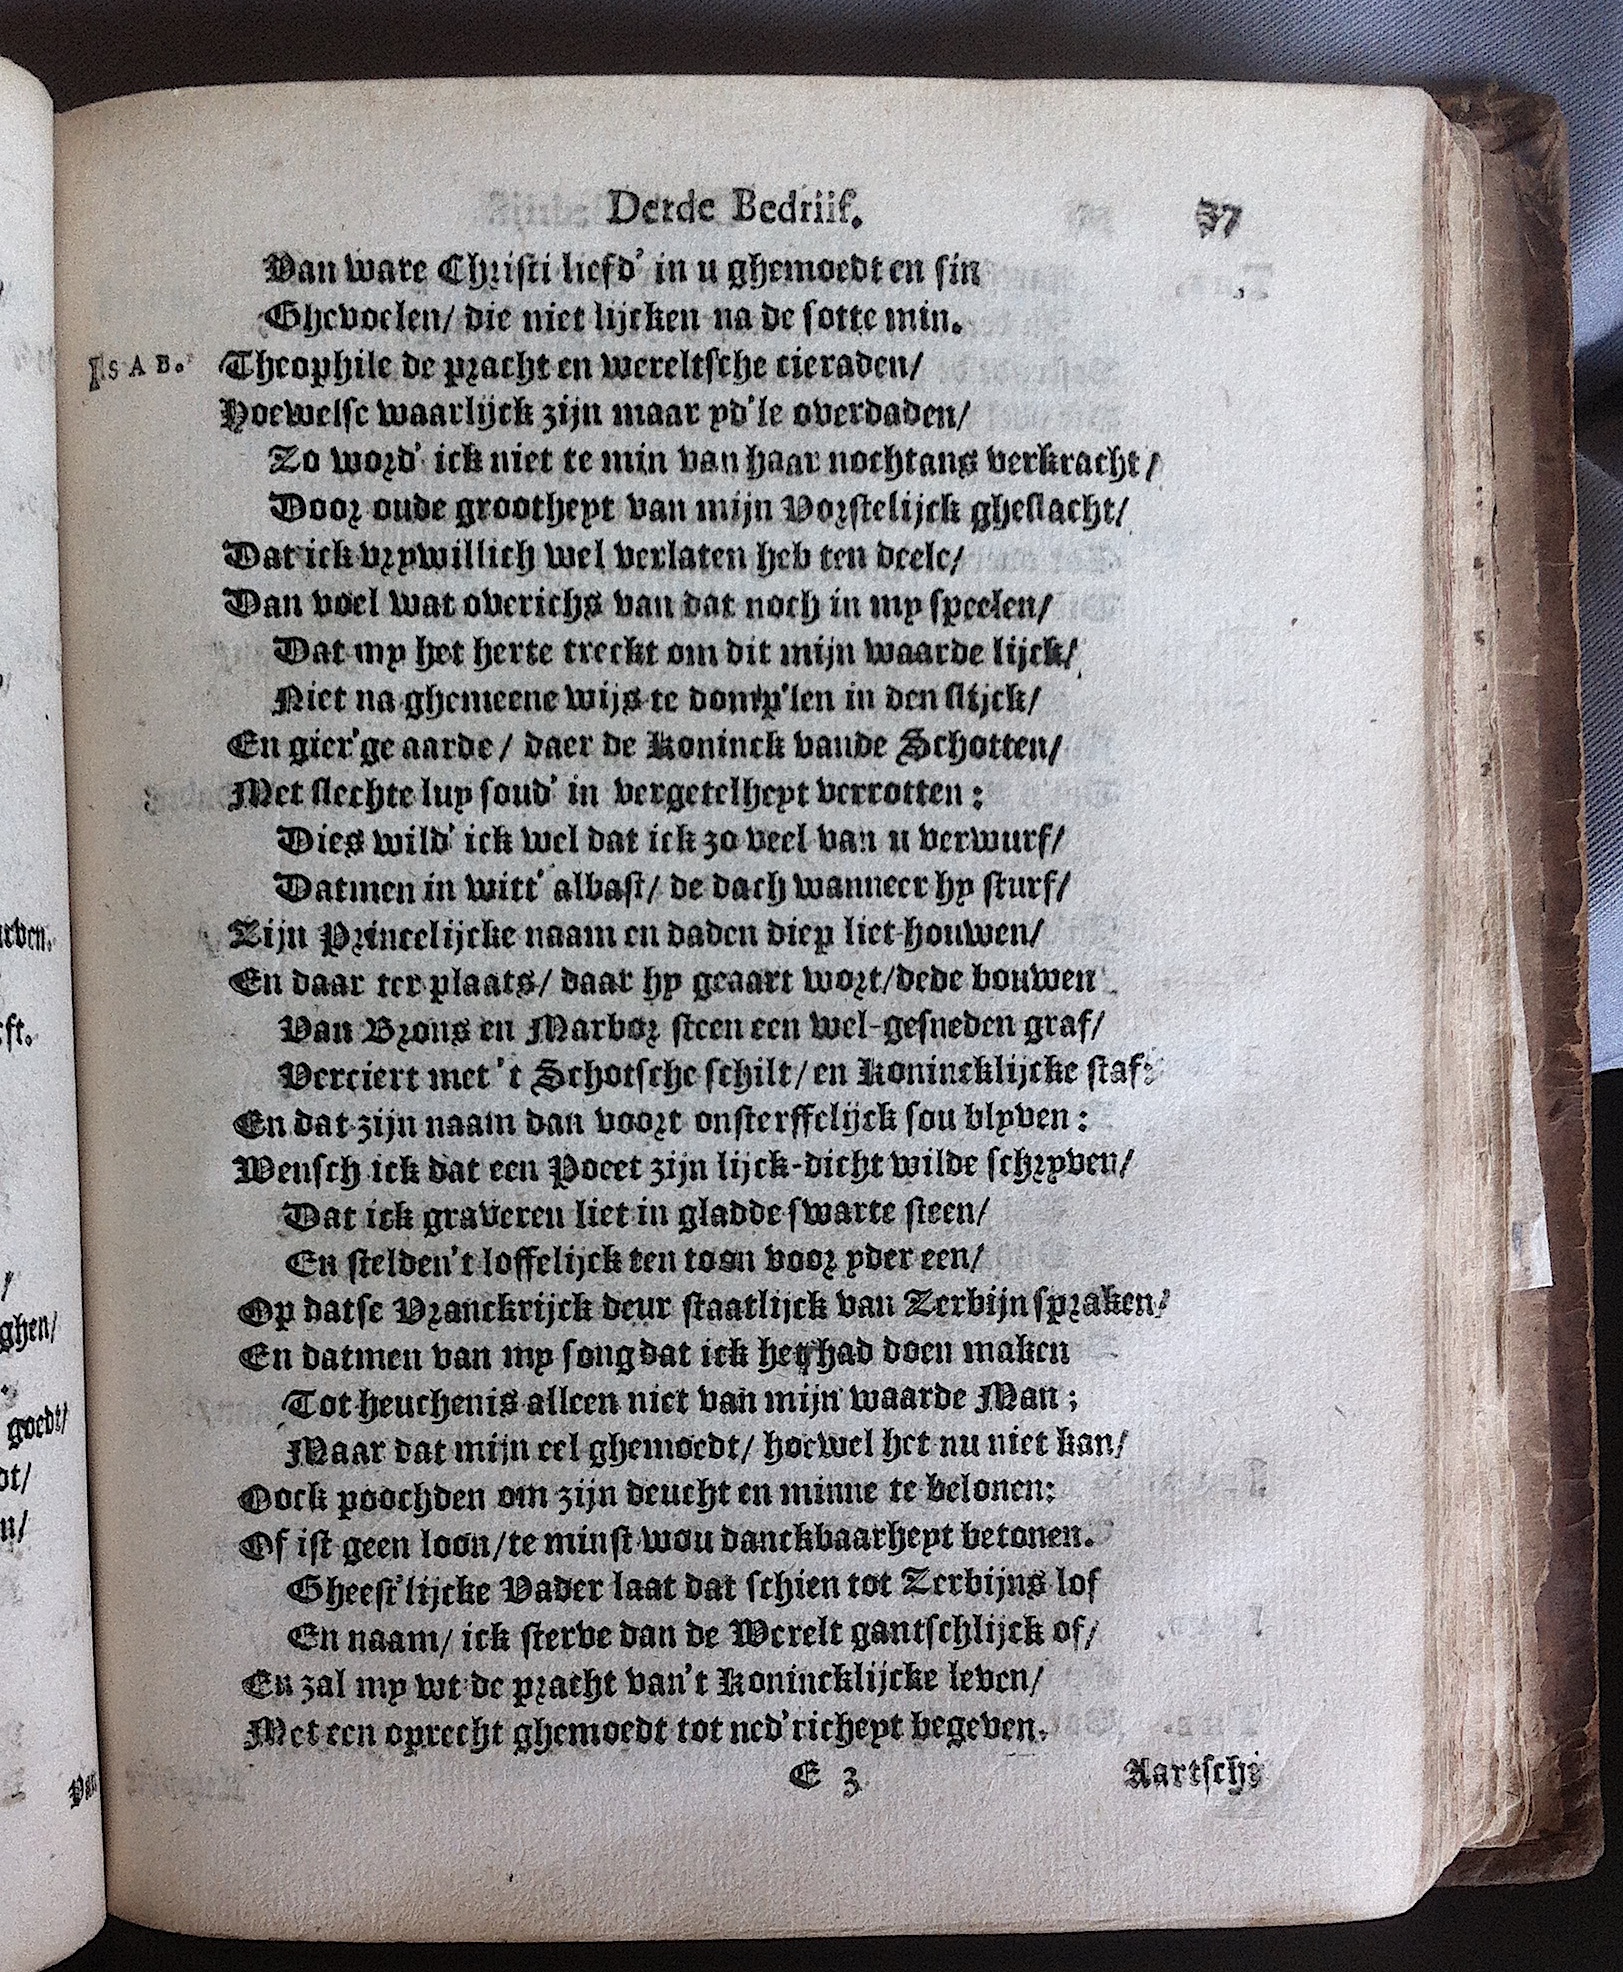 Derde Bedriif. 37
Van ware Christi liefd' in u ghemoedt en sin
Ghevoelen/ die niet lijcken na de sotte min.
ISAB. Theophile de pracht en wereltsche cieraden/
Hoewelse waarlijck zijn maar yd'le overdaden/
Zo word' ick niet te min van haar nochtans verkracht/
Door oude grootheyt van mijn Vorstelijck gheslacht/
Dat ick vrywillich wel verlaten heb ten deele/
Dan voel wat overichs van dat noch in my speelen/
Dat my het herte treckt om dit mijn waarde lijck/
Niet na ghemeene wijs te domp'len in den slijck/
En gier'ge aarde/ daer de Koninck vande Schotten/
Met slechte luy soud' in vergetelheyt verrotten:
Dies wild' ick wel dat ick zo veel van u verwurf/
Datmen in witt' albast/ de dach wanneer hy sturf/
Zijn Princelijcke naam en daden diep liet houwen/
En daar ter plaats/ daar hy geaart wort/dede bouwen
Van Brons en Marbor steen een wel-gesneden graf/
Verciert met 't Schotsche schilt/ en Konincklijcke staf:
En dat zijn naam dan voort onsterffelijck sou blyven:
Wensch ick dat een Poeet zijn lijck-dicht wilde schryven/
Dat ick graveren liet in gladde swarte steen/
En stelden't loffelijck ten toon voor yder een/
Op datse Vranckrijck deur staatlijck van Zerbijn spraken/
En datmen van my song dat ick het had doen maken
Tot heuchenis alleen niet van mijn waarde Man;
Maar dat mijn eel ghemoedt/ hoewel het nu niet kan/
Oock poochden om zijn deucht en minne te belonen:
Of ist geen loon/te minst wou danckbaarheyt betonen.
Gheest'lijcke Vader laat dat schien tot Zerbijns lof
En naam/ ick sterve dan de Werelt gantschlijck of/
En zal my wt de pracht van't Konincklijcke leven/
Met een oprecht ghemoedt tot ned'richeyt begeven.
E 3 Aartsche